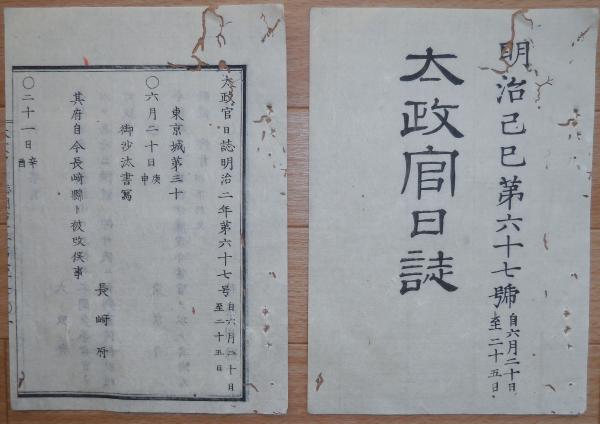 明治己巳第六十七號 自六月二十日 至二十五日
太政官日誌
太政官日誌明治二年第六十七号 自六月二十日 至二十五日
東京城第三十
〇六月二十日庚申
御沙汰書寫
長崎府
其府自今長崎縣ト被改候事
〇二十一日辛酉